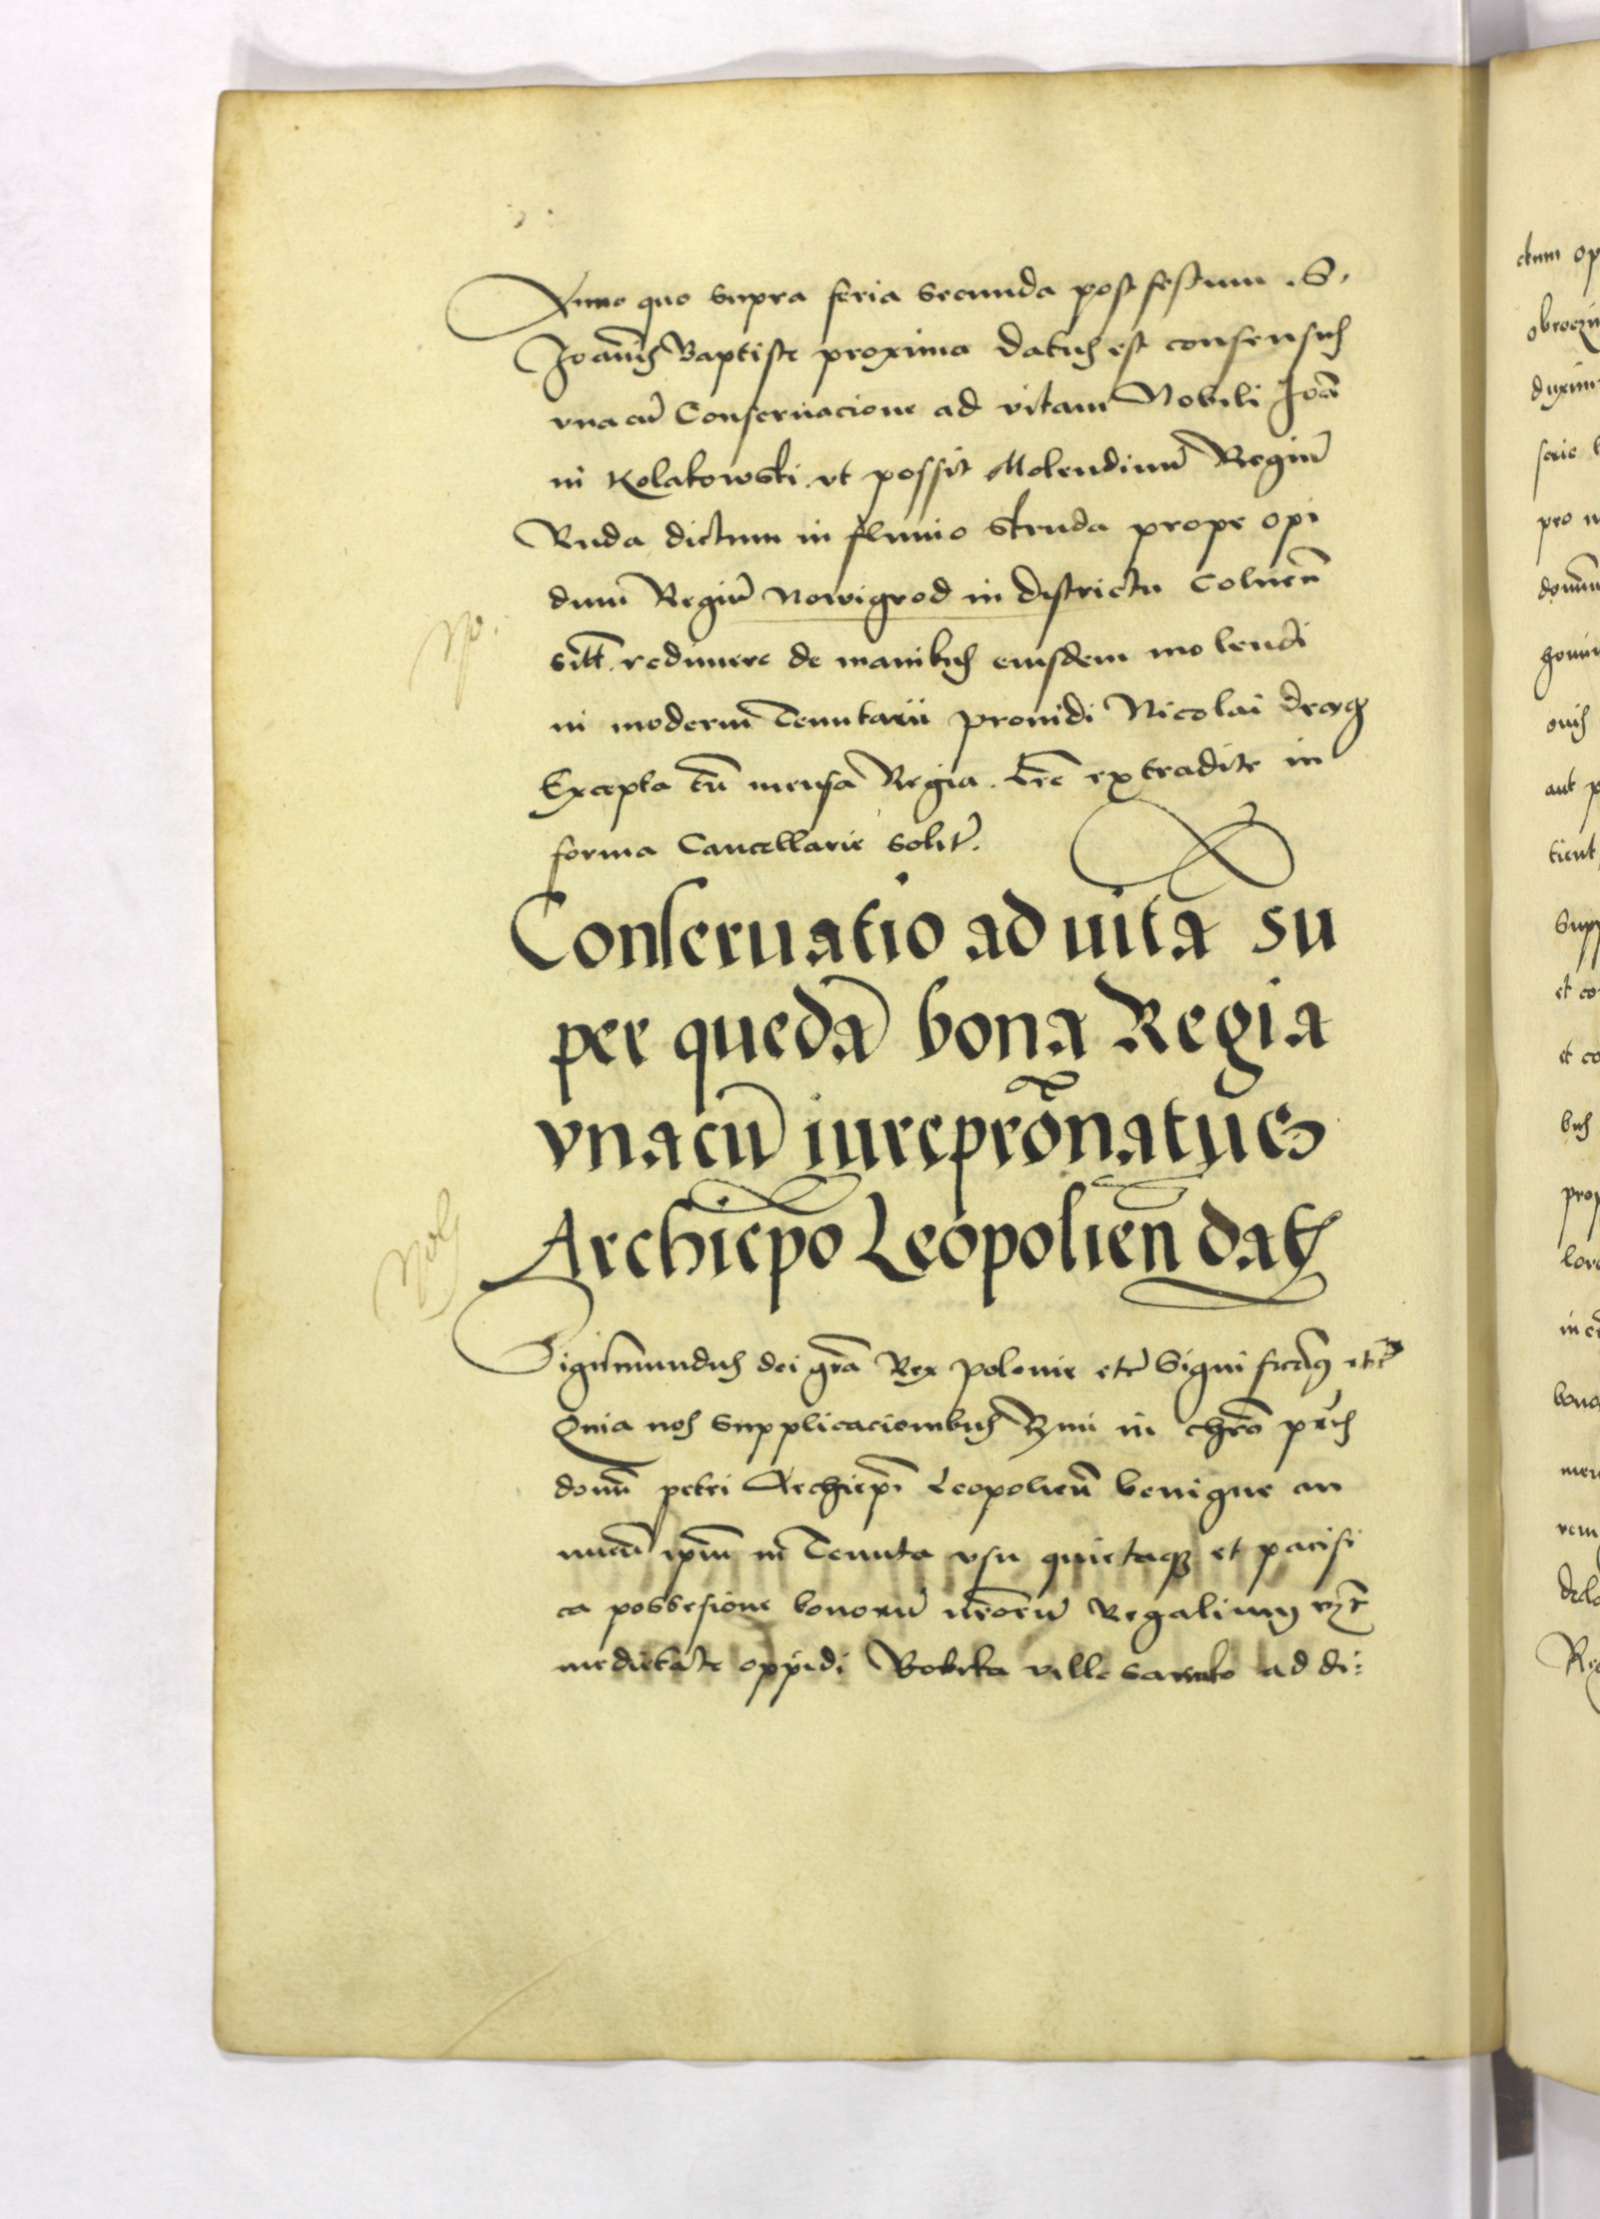 Anno quo supra feria secunda post festum .S.
Joannis Baptiste proxima datus est consensus
vna cū Conseruacione ad vitam Nobili Joā
ni Kolakowski vt possit Molendinū Regiū
Ruda dictum in fluuio Skruda prope opi
dum Regiū Nowigrod in districtu Colneñ
sitt. redimere de manibus eiusdem molendi
ni moderni Tenutarii prouidi Nicolai
Excepta tñ mensa Regia. Lrē extradite in
forma Cancellarie solit.
Conseruatio ad uitā su
per quedā bona Regia
vna cū iurepr̄onatus
Archiep̄o Leopolieñ dat
Sigismundus dei grā Rex Polonie etc̄ Significamq
Quia nos Supplicacionibus Rmi in chr̄o pr̄is
domī petri Archiep̄i Leopolieñ benigne an
nuen ipm̄ in Tenuta vsu quietaq et pacifi
ca possesione bonorū nr̄orū Regalium vz
medietate oppidi Bobrka ville ad di:
No.
dum op
duxim
pro n
aut p
et co
et co
bus
prop